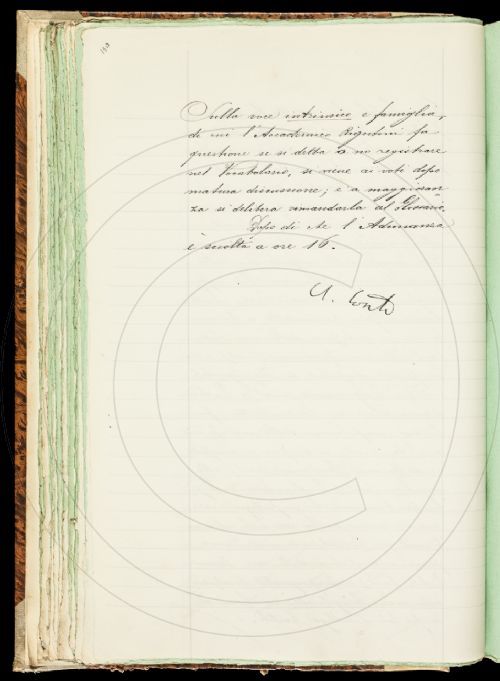 Sulla voce intrinsico e famiglia,
di cui l'Accademico Rigutini fa
questione se si debba o no registrare
nel Vocabolario, si viene ai voti dopo
matura discussione; e a maggioran
za si delibera rimandarla al Glossario.
Dopo di che l'Adunanza
è sciolta a ore 16.
A. Conti